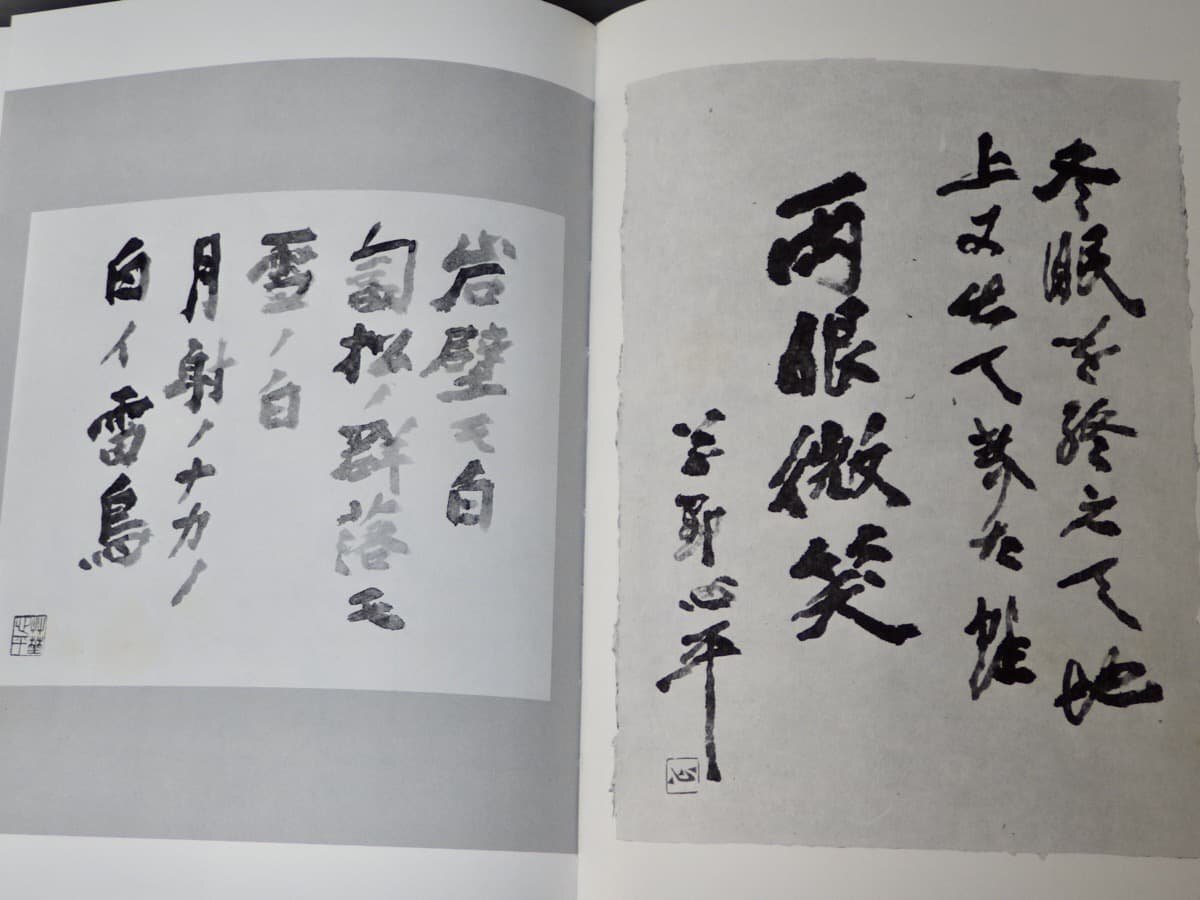 冬眠を終えて地
上に出て来た蛙
両眼微笑
草野心平
岩壁モ白
匐松ノ群落モ
雪ノ白
月射ノナカノ
白イ雷鳥